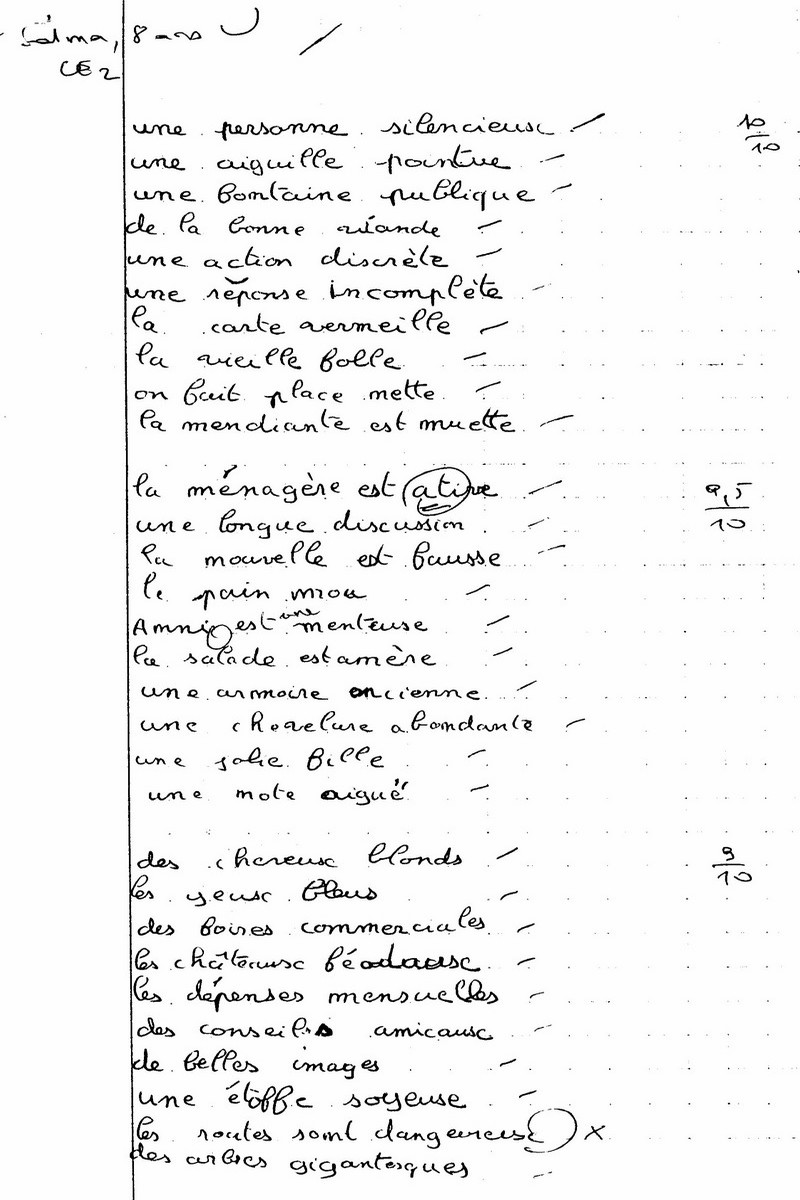 Salma, 8 ans
CE2
une personne silencieuse 10/10
une aiguille pointue
une fontaine publique
de la bonne viande
une action discrète
une réponse incomplète
la carte vermeille
la vieille folle
on fait place nette
la mendiante est muette
la ménagère est ative 9,5/10
une longue discussion
la nouvelle est fausse
le pain mou
Annie est une menteuse
la salade est amère
une armoire ancienne
une chevelure abondante
une jolie fille
une note aiguë
des cheveux blonds 9/10
les yeux bleus
des foires commerciales
les châteaux féodaux
les dépenses mensuelles
des conseils amicaux
de belles images
une étoffe soyeuse
les routes sont dangereuse x
des arbres gigantesques